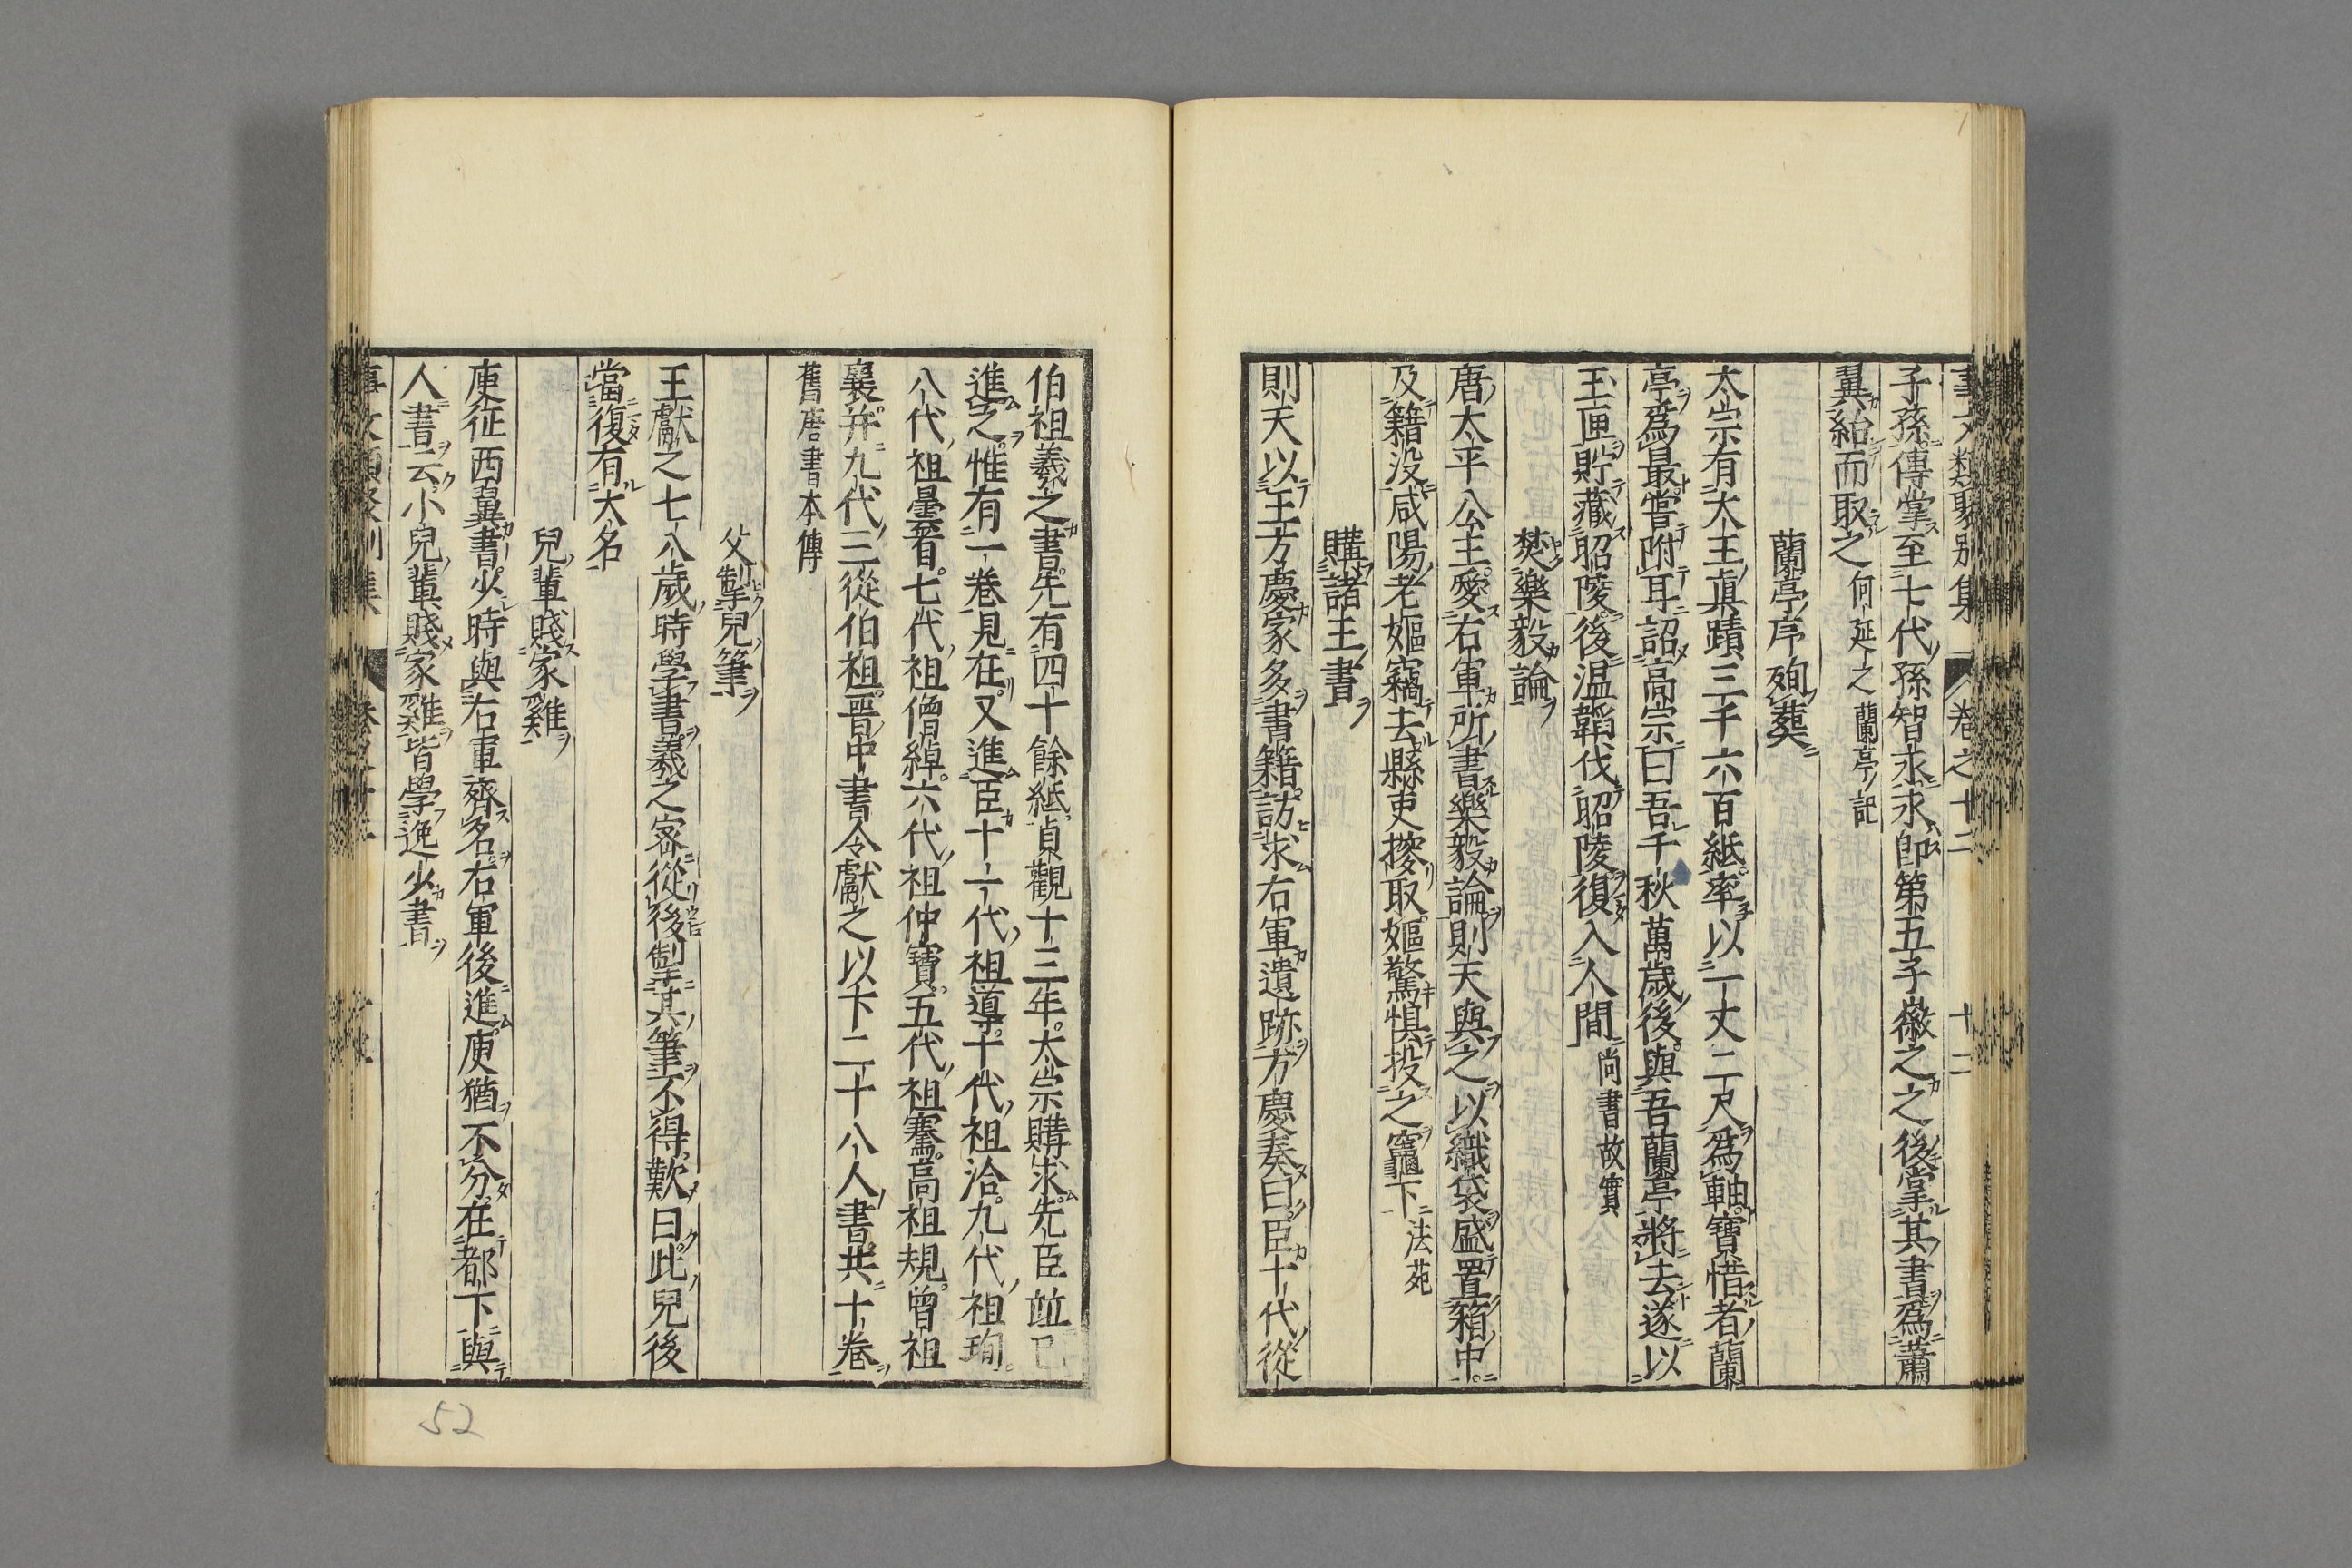 子孫傳掌至七代孫智永永卽第五子徽之之後掌其書爲蕭
翼紿而取之 何延之蘭亭記
蘭亭序殉葬
太宗有大王真蹟三千六百紙率以一丈二尺爲軸寶惜者蘭
亭爲最嘗附耳詔高宗曰吾千秋萬歲後與吾蘭亭將去遂以
玉匣貯藏昭陵後温韜伐昭陵復入人間 尚書故實
焚樂毅論
唐太平公主愛右軍所書樂毅論則天與之以織袋盛置箱中
及籍没咸陽老嫗竊去縣吏搜取嫗驚懼投之竈下 法苑
購諸王書
則天以王方慶家多書籍訪求右軍遺跡方慶奏曰臣十代從
伯祖羲之書先有四十餘紙貞觀十三年太宗購求先臣竝已
進之惟有一卷見在又進臣十一代祖導十代祖洽九代祖珣
八代祖曇首七代祖僧綽六代祖仲寶五代祖騫高祖規曾祖
襄并九代三從伯祖晉中書令獻之以下二十八人書共十卷
舊唐書本傳
父掣兒筆
王獻之七八歲時學書羲之密從後掣其筆不得歎曰此兒後
當復有大名
兒輩賤家雞
庾征西翼書少時與右軍齊名右軍後進庾猶不分在都下與
人書云小兒輩賤家雞皆學逸少書
卷之十二
十二
52